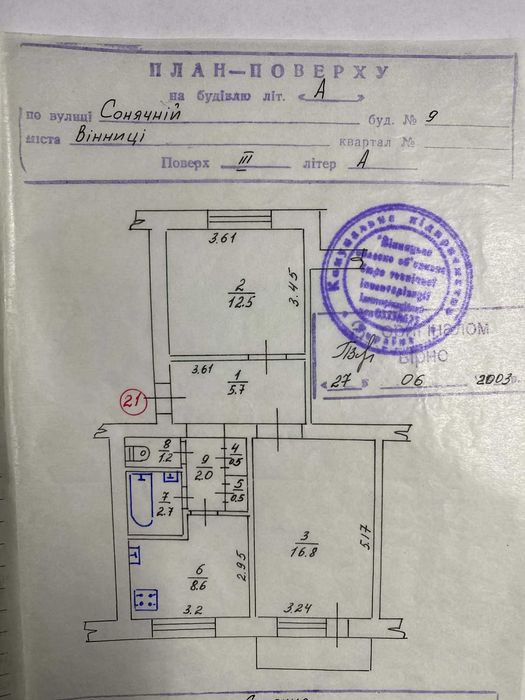 ПЛАН-ПОВЕРХУ
на будівлю літ. А
по вулиці Сонячній буд. № 9
міста Вінниці квартал №
Поверх III літер А
3.61
2
12.5
3.45
Комунальне підприємство
"Вінницьке
технічної
інвентаризації
Україна
оригіналом
Вірно
"27" 06 2003
3.61
1
5.7
21
8
1.2
9
2.0
4
0.5
5
0.5
7
2.7
3
16.8
5.17
6
8.6
2.95
3.2
3.24